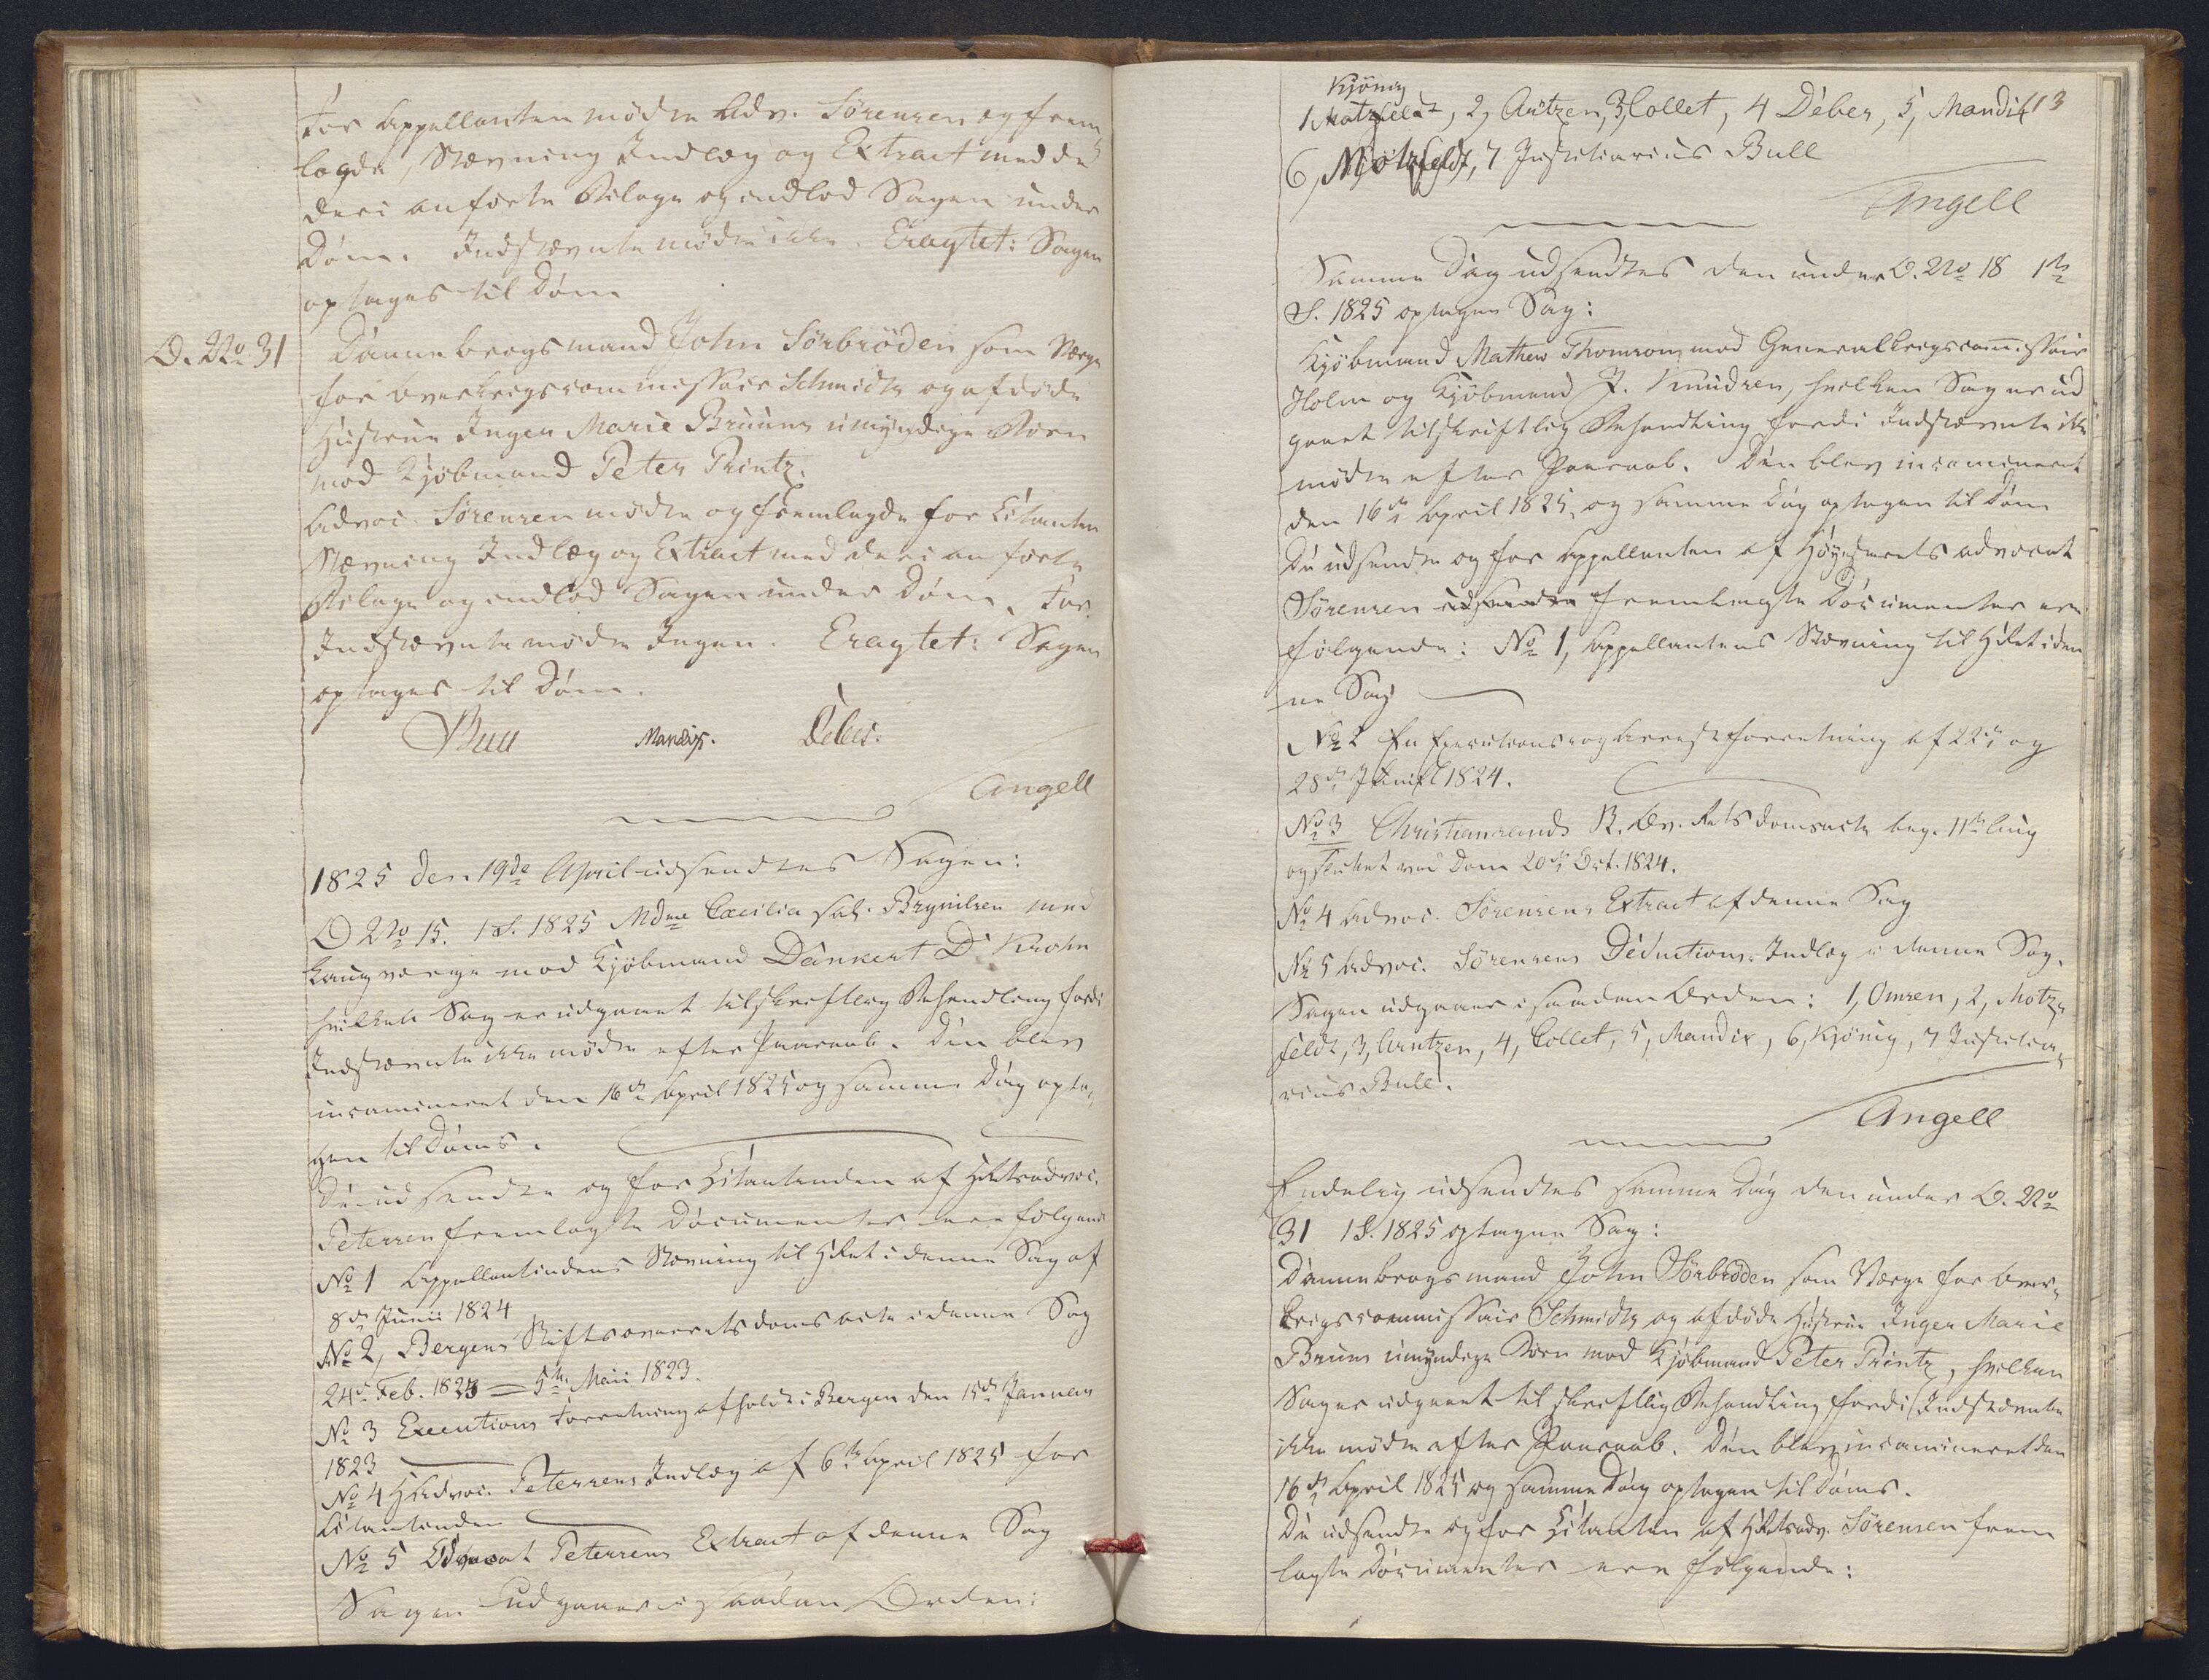 For Appellanten mødte Adv. Sörensen og frem
lagde, Stævning Indlæg og Extract med de
deri anførte Bilage og indlod Sagen under
Dom. Indstævnte mødte ikke. Eragtet: Sagen
optages til Dom
O. No 31 Dannebrogsmand John Sörbröden som Værge
for Overkrigscommissair Schmidts og afdøde
Hustrue Inger Marie Bruuns umyndige Børn
mod Kjöbmand Peter Printz.
Advoc. Sörensen mødte og fremlagde for Citanten
Stævning Indlæg og Extract med deri anførte
Bilage og indlod Sagen under Dom. For
Indstævnte mødte Ingen. Eragtet: Sagen
optages til Dom.
Bull Mandix. Debes.
Angell
1825 den 19de April udsendtes Sagen:
O No 15. 1 S. 1825 Mdme Cæcilia sal. Brynilsen med
Laugværge mod Kjöbmand Dankert D. Krohn
hvilken Sag er udgaaet til skriftlig Behandling fordi
Indstævnte ikke mødte efter Paaraab. Den blev
incamineret den 16de April 1825 og samme Dag opta-
gen til Doms.
De udsendte og for Citantinden af HRtsadvoc.
Petersen fremlagte Documenter ere følgende
No 1 Appellantindens Stævning til HRet i denne Sag af
8de Junii 1824
No 2, Bergens Stiftsoverretsdomsacte i denne Sag
24de Feb. 1823 = 5te Maii 1823.
No 3 Executions Forretning afholdt i Bergen den 15de Januar
1823
No 4 HAdvoc. Petersens Indlæg af 6te April 1825 for
Citantinden
No 5 Advocat Petersens Extract af denne Sag
Sagen udgaaer i saadan Orden:
13
Kjönig
1 Motzfeldt, 2, Arntzen, 3, Collet, 4 Debes, 5, Mandix
6, Motzfeldt, 7 Justitiarius Bull
Angell
Samme Dag udsendtes den under O. No 18 1te
S. 1825 optagne Sag:
Kjöbmand Mathew Thomsom mod Generalkrigscommissair
Holm og Kjöbmand J. Knudsen, hvilken Sag er ud
gaaet til skriftlig Behandling fordi Indstævnte ikke
mødte efter Paaraab. Den blev incamineret
den 16de April 1825, og samme Dag optagen til Dom
De udsendte og for Appellanten af Höiesterets advocat
Sörensen udsendte fremlagte Documenter ere
følgende: No 1, Appellantens Stævning til HRet i den
ne Sag
No 2 En Executions og Arrestforretning af 22de og
28de Junii 1824.
No 3 Christiansands St. Ov. Rets domsacte beg. 11te Aug
og sluttet ved Dom 20de Oct. 1824.
No 4 Advoc. Sörensens Extract af denne Sag
No 5 Advoc. Sörensens Deductions-Indlæg i denne Sag.
Sagen udgaaer i saadan Orden: 1, Omsen, 2, Motz-
feldt, 3, Arntzen, 4, Collet, 5, Mandix, 6, Kjönig, 7 Justitia-
rius Bull.
Angell
Endelig udsendtes samme Dag den under O. No
31 1 S. 1825 optagne Sag:
Dannebrogsmand John Sörbröden som Værge for Over-
krigscommissair Schmidts og afdøde Hustrue Inger Marie
Bruuns umyndige Børn mod Kjöbmand Peter Printz, hvilken
Sag er udgaaet til skriftlig Behandling fordi Indstævnte
ikke mødte efter Paaraab. Den blev incamineret den
16de April 1825 og samme Dag optagen til Doms.
De udsendte og for Citanten af HRtsadv. Sörensen frem
lagte Documenter ere følgende: